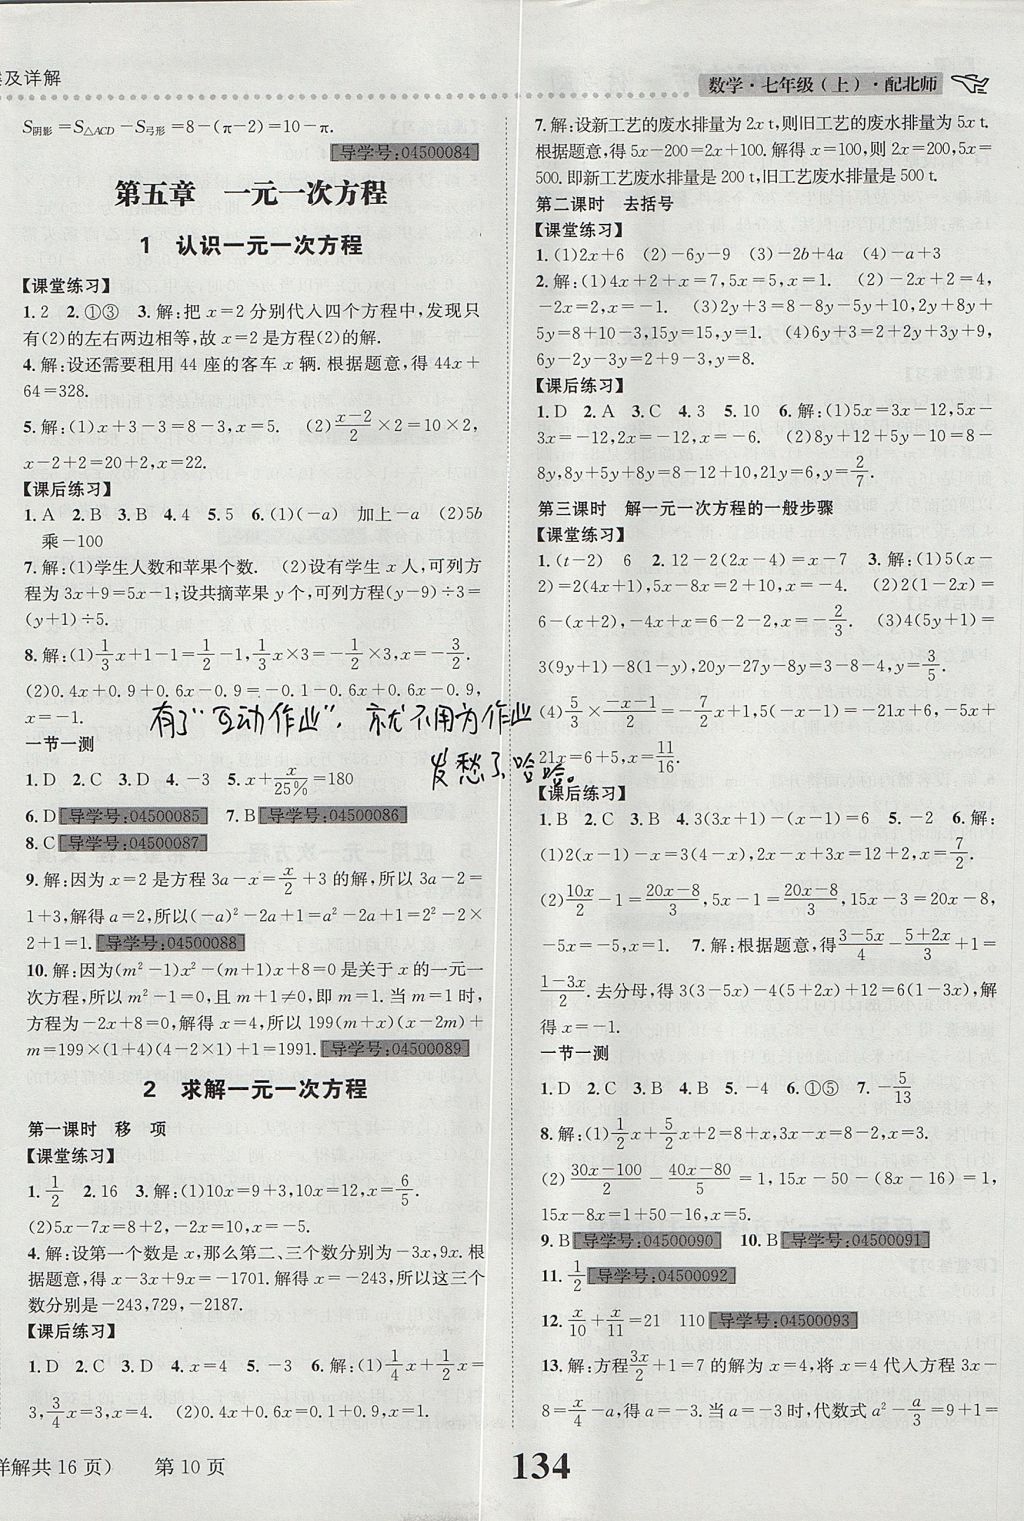 案及详解
数学·七年级(上)·配北师
S阴影=S△ACD-S弓形=8-(π-2)=10-π.
导学号:04500084
第五章 一元一次方程
1 认识一元一次方程
【课堂练习】
1.2 2.①③ 3.解:把 x=2 分别代入四个方程中,发现只
有(2)的左右两边相等,故 x=2 是方程(2)的解.
4.解:设还需要租用 44 座的客车 x 辆.根据题意,得 44x+
64=328.
5.解:(1)x+3-3=8-3,x=5. (2)(x-2)/2×2=10×2,
x-2+2=20+2,x=22.
【课后练习】
1.A 2.B 3.B 4.4 5.5 6.(1)(-a) 加上-a (2)5b
乘-100
7.解:(1)学生人数和苹果个数. (2)设有学生 x 人,可列方
程为 3x+9=5x-1;设共摘苹果 y 个,可列方程(y-9)÷3=
(y+1)÷5.
8.解:(1)1/3x+1-1=1/2-1,1/3x×3=-1/2×3,x=-3/2.
(2)0.4x+0.9+0.6x-0.9=-0.1-0.6x+0.6x-0.9,
x=-1.
有了“互动作业”,就不用为作业
发愁了,哈哈。
一节一测
1.D 2.C 3.D 4.-3 5.x+x/25%=180
6.D 导学号:04500085 7.B 导学号:04500086
8.C 导学号:04500087
9.解:因为 x=2 是方程 3a-x=x/2+3 的解,所以 3a-2=
1+3,解得 a=2,所以(-a)²-2a+1=a²-2a+1=2²-2×
2+1=1. 导学号:04500088
10.解:因为(m²-1)x²-(m+1)x+8=0 是关于 x 的一元一
次方程,所以 m²-1=0,且 m+1≠0,即 m=1.当 m=1 时,
方程为-2x+8=0,解得 x=4,所以 199(m+x)(x-2m)+
m=199×(1+4)(4-2×1)+1=1991. 导学号:04500089
2 求解一元一次方程
第一课时 移 项
【课堂练习】
1.1/2 2.16 3.解:(1)10x=9+3,10x=12,x=6/5.
(2)5x-7x=8+2,-2x=10,x=-5.
4.解:设第一个数是 x,那么第二、三个数分别为-3x,9x.根
据题意,得 x-3x+9x=-1701.解得 x=-243,所以这三个
数分别是-243,729,-2187.
【课后练习】
1.D 2.C 3.D 4.5 5.-3 6.解:(1)1/4x+1/2x=
3,3/4x=3,x=4. (2)0.4x+0.6x=0.1+0.9,x=1.
7.解:设新工艺的废水排量为 2x t,则旧工艺的废水量为 5x t.
根据题意,得 5x-200=2x+100.解得 x=100,则 2x=200,5x=
500.即新工艺废水排量是 200 t,旧工艺废水排量是 500 t.
第二课时 去括号
【课堂练习】
1.(1)2x+6 (2)-6y-9 (3)-2b+4a (4)-a+3
2.解:(1)4x+2+x=7,5x=5,x=1. (2)-2x+2=4,
-2x=2,x=-1. (3)2y+3=8-8y-5y+10,2y+8y+
5y=8+10-3,15y=15,y=1. (4)6y+3=2+2y+3y+9,
6y-2y-3y=2+9-3,y=8.
【课后练习】
1.D 2.A 3.C 4.3 5.10 6.解:(1)5x=3x-12,5x-
3x=-12,2x=-12,x=-6. (2)8y+12+5y-10=8-
8y,8y+5y+8y=8-12+10,21y=6,y=2/7.
第三课时 解一元一次方程的一般步骤
【课堂练习】
1.(t-2) 6 2.12-2(2x-4)=x-7 3.解:(1)5(x-
2)=2(4x+1),5x-8x=2+10,x=-4. (2)2(1-2x)=
6-(x+2),-4x+x=6-2-2,x=-2/3. (3)4(5y+1)=
3(9y+1)-8(1-y),20y-27y-8y=3-8-4,y=3/5.
(4)5/3×(-x-1)/2=-7/2x+1,5(-x-1)=-21x+6,-5x+
21x=6+5,x=11/16.
【课后练习】
1.B 2.A 3.B 4.2 4.3(3x+1)-(x-1)=6 5.-2 6.解:
(1)2(x-1)-(x-2)=3(4-x),4x=12,x=7/2.
(2)10x/2-1=(20x-8)/3,5x-1=(20x-8)/3,15x-3=20x-8,
-5x=-5,x=1. 7.解:根据题意,得(3-5x)/4-(5+2x)/3+1=
(1-3x)/2.去分母,得 3(3-5x)-4(5+2x)+12=6(1-3x),解
得 x=-1.
一节一测
1.D 2.C 3.B 4.B 5.-4 6.①⑤ 7.-5/13
8.解:(1)1/2x+5/2x+2=8+x,3x-x=8-2,x=3.
(2)(30x-100)/2-(40x-80)/5=1,15x-50-(8x-16)=1,
15x-8x=1+50-16,x=5.
9.B 导学号:04500090 10.B 导学号:04500091
11.1/2 导学号:04500092
12.x/10+x/11=21 110 导学号:04500093
13.解:方程3x/2+1=7 的解为 x=4,将 x=4 代入方程 3x-
8=-x/2-a,得 a=-6.当 a=-6 时,代数式 a²-a/3+9=1=
详解共 16 页) 第 10 页
134